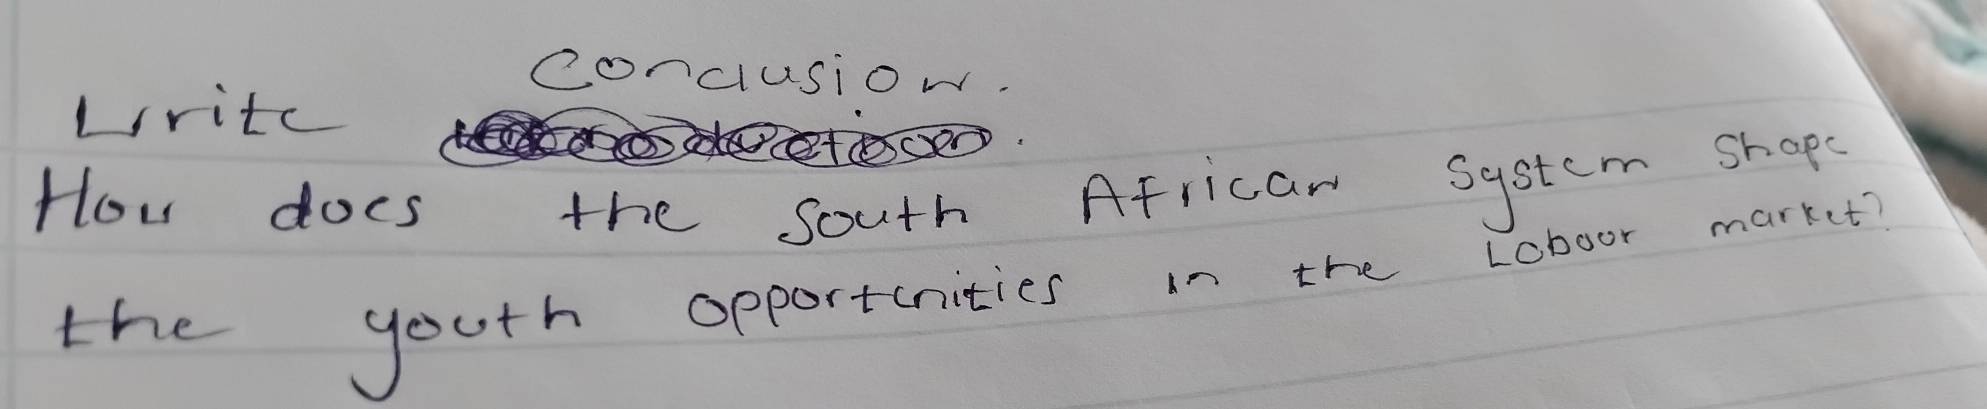 Write Conclusion.
How does the South African System Shape
the youth opportunities in the Labour market?